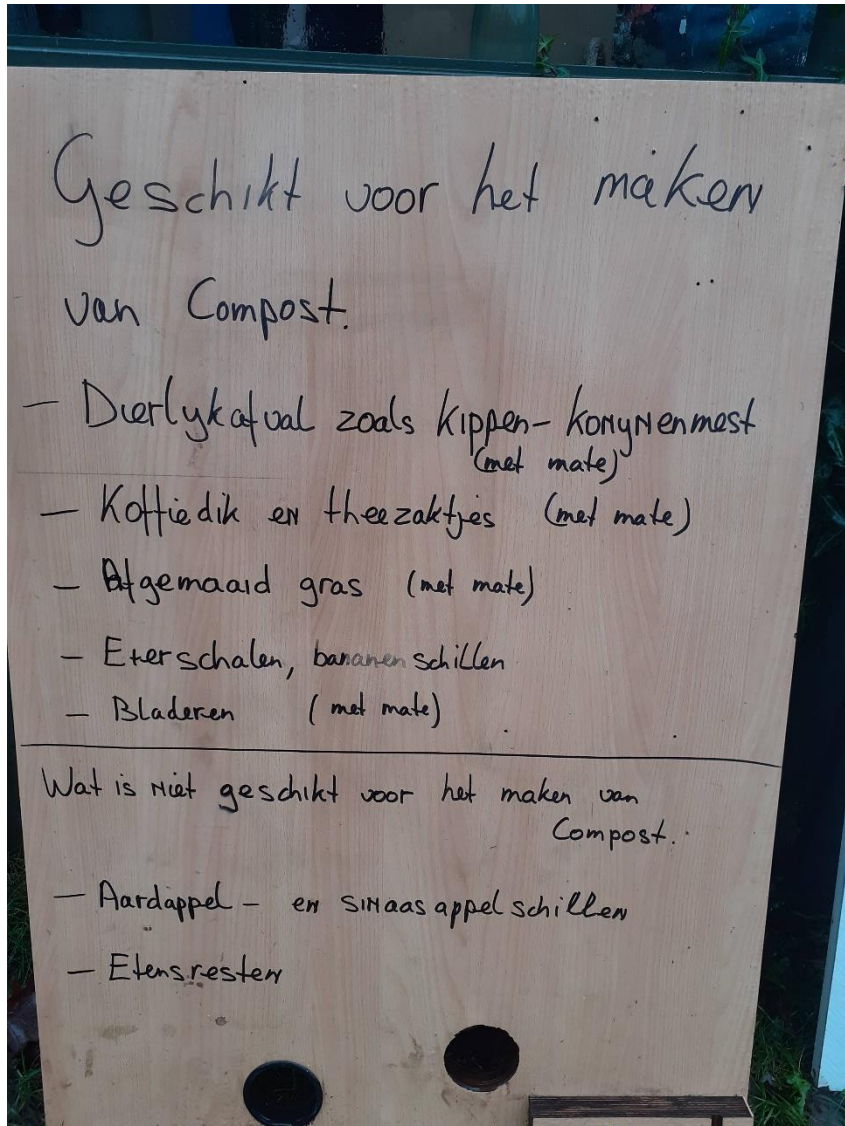 Geschikt voor het maken
van Compost.
- Dierlykafval zoals kippen- konynenmest
(met mate)
- Koffiedik en theezakjes (met mate)
- Afgemaaid gras (met mate)
- Eierschalen, bananenschillen
- Bladeren (met mate)
Wat is niet geschikt voor het maken van
Compost.
- Aardappel- en sinaasappelschillen
- Etensresten